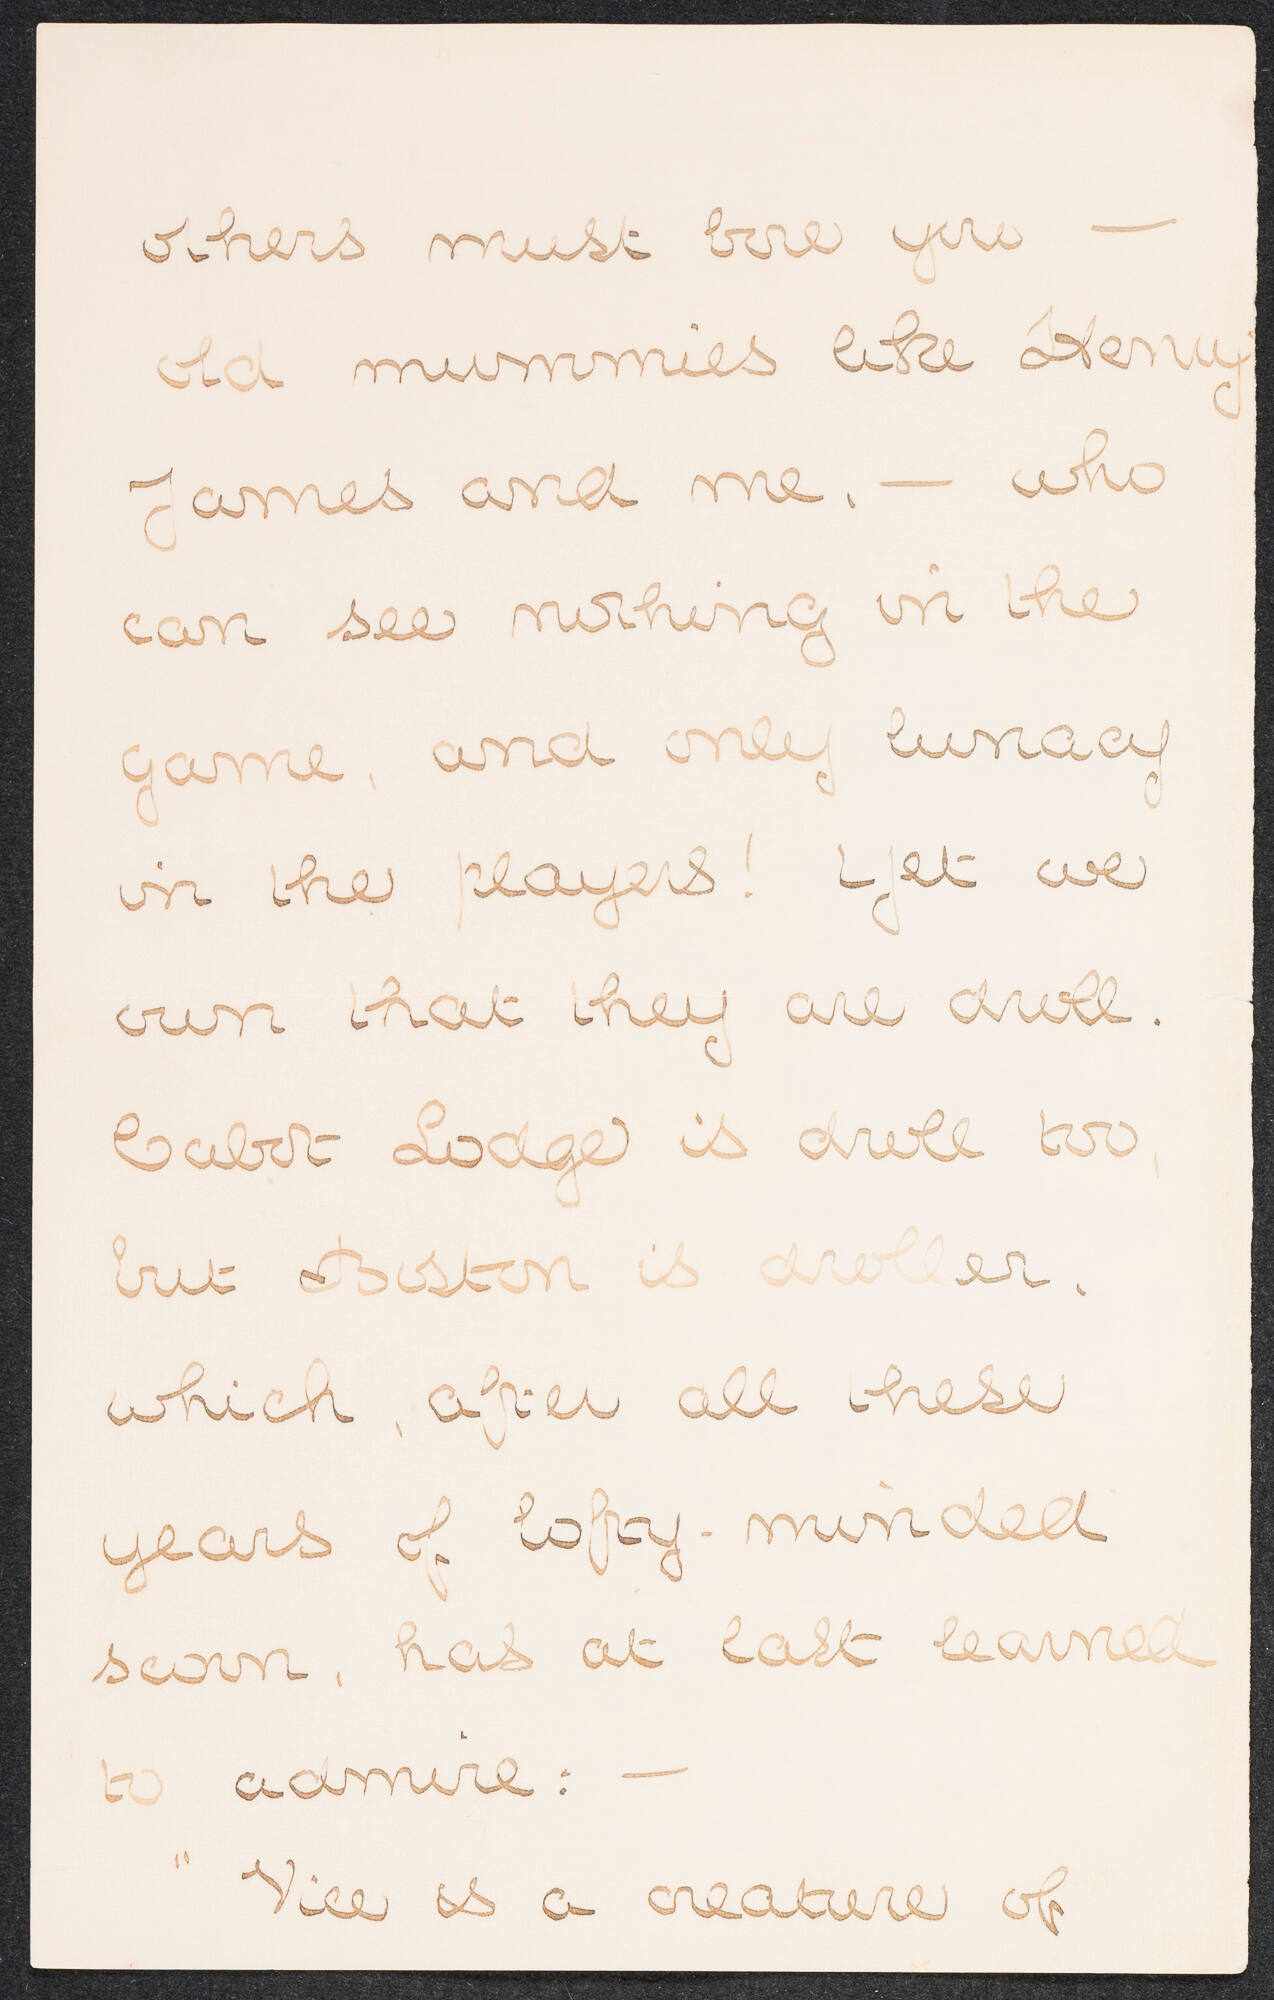 others must bore you —
old mummies like Henry
James and me, — who
can see nothing in the
game, and only lunacy
in the players! Yet we
own that they are droll.
Cabot Lodge is droll too,
but Boston is droller,
which, after all these
years of lofty-minded
scorn, has at last learned
to admire: —
" Vice is a creature of